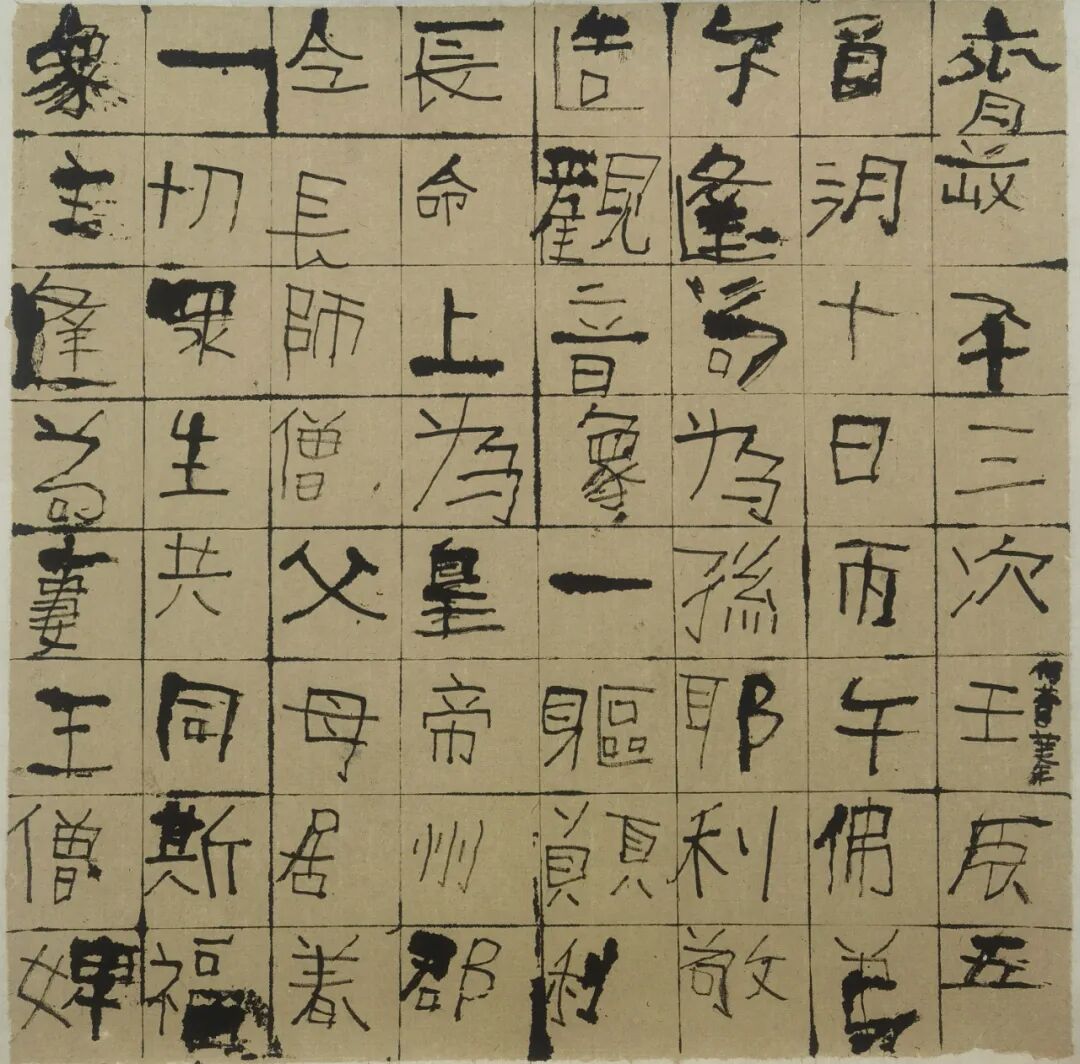 齊武平三次壬辰五
月朔十日丙午佛弟
子逢苟為孫耶利敬
造觀音象一軀願利
長命上為皇帝州郡
令長師僧父母居着
一切眾生共同斯福
象主逢苟妻王僧婢